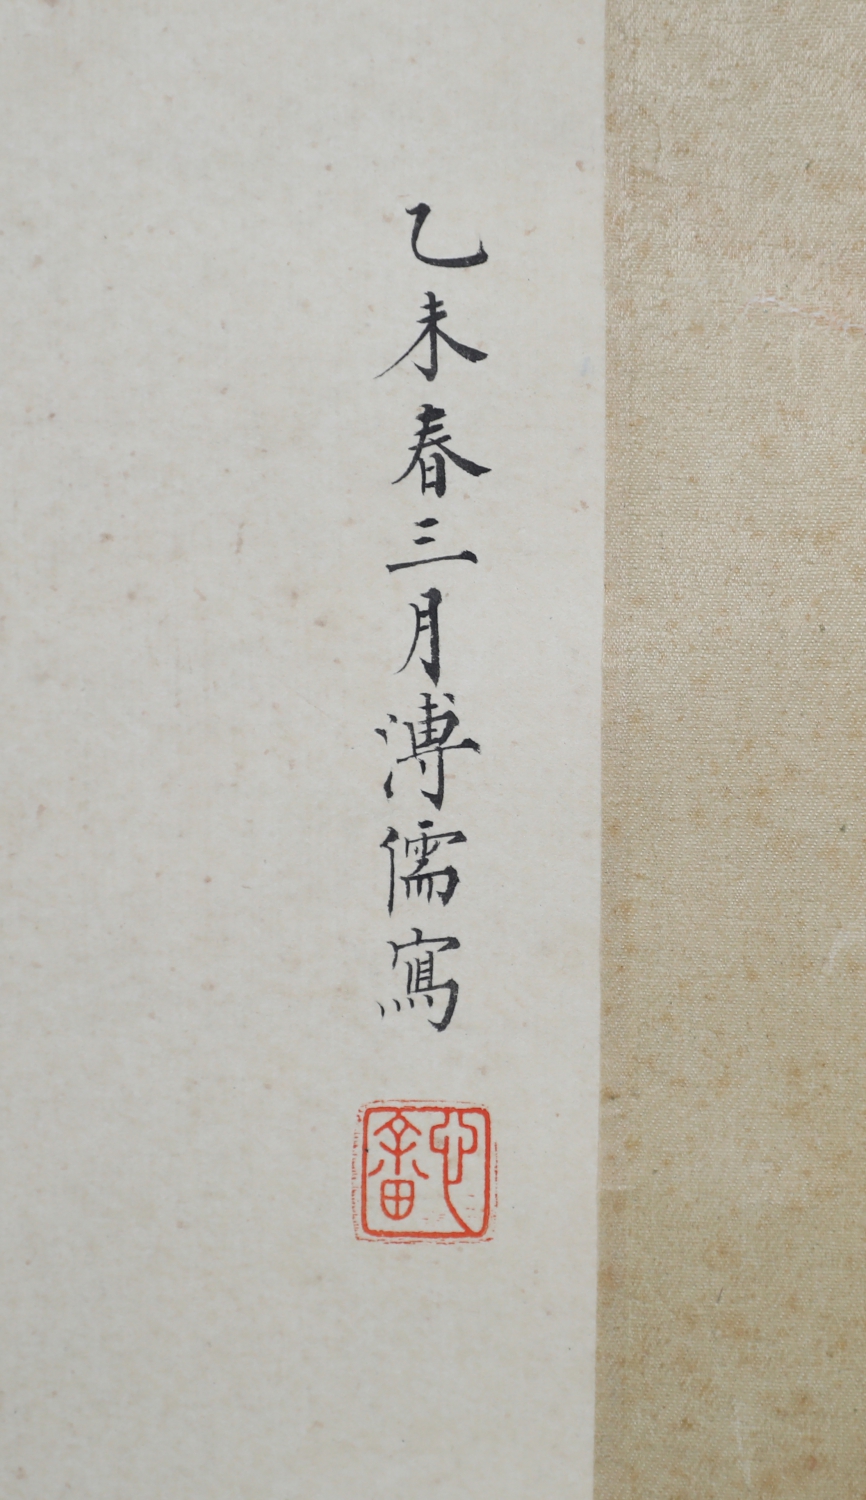 乙未春三月溥儒寫
心畬